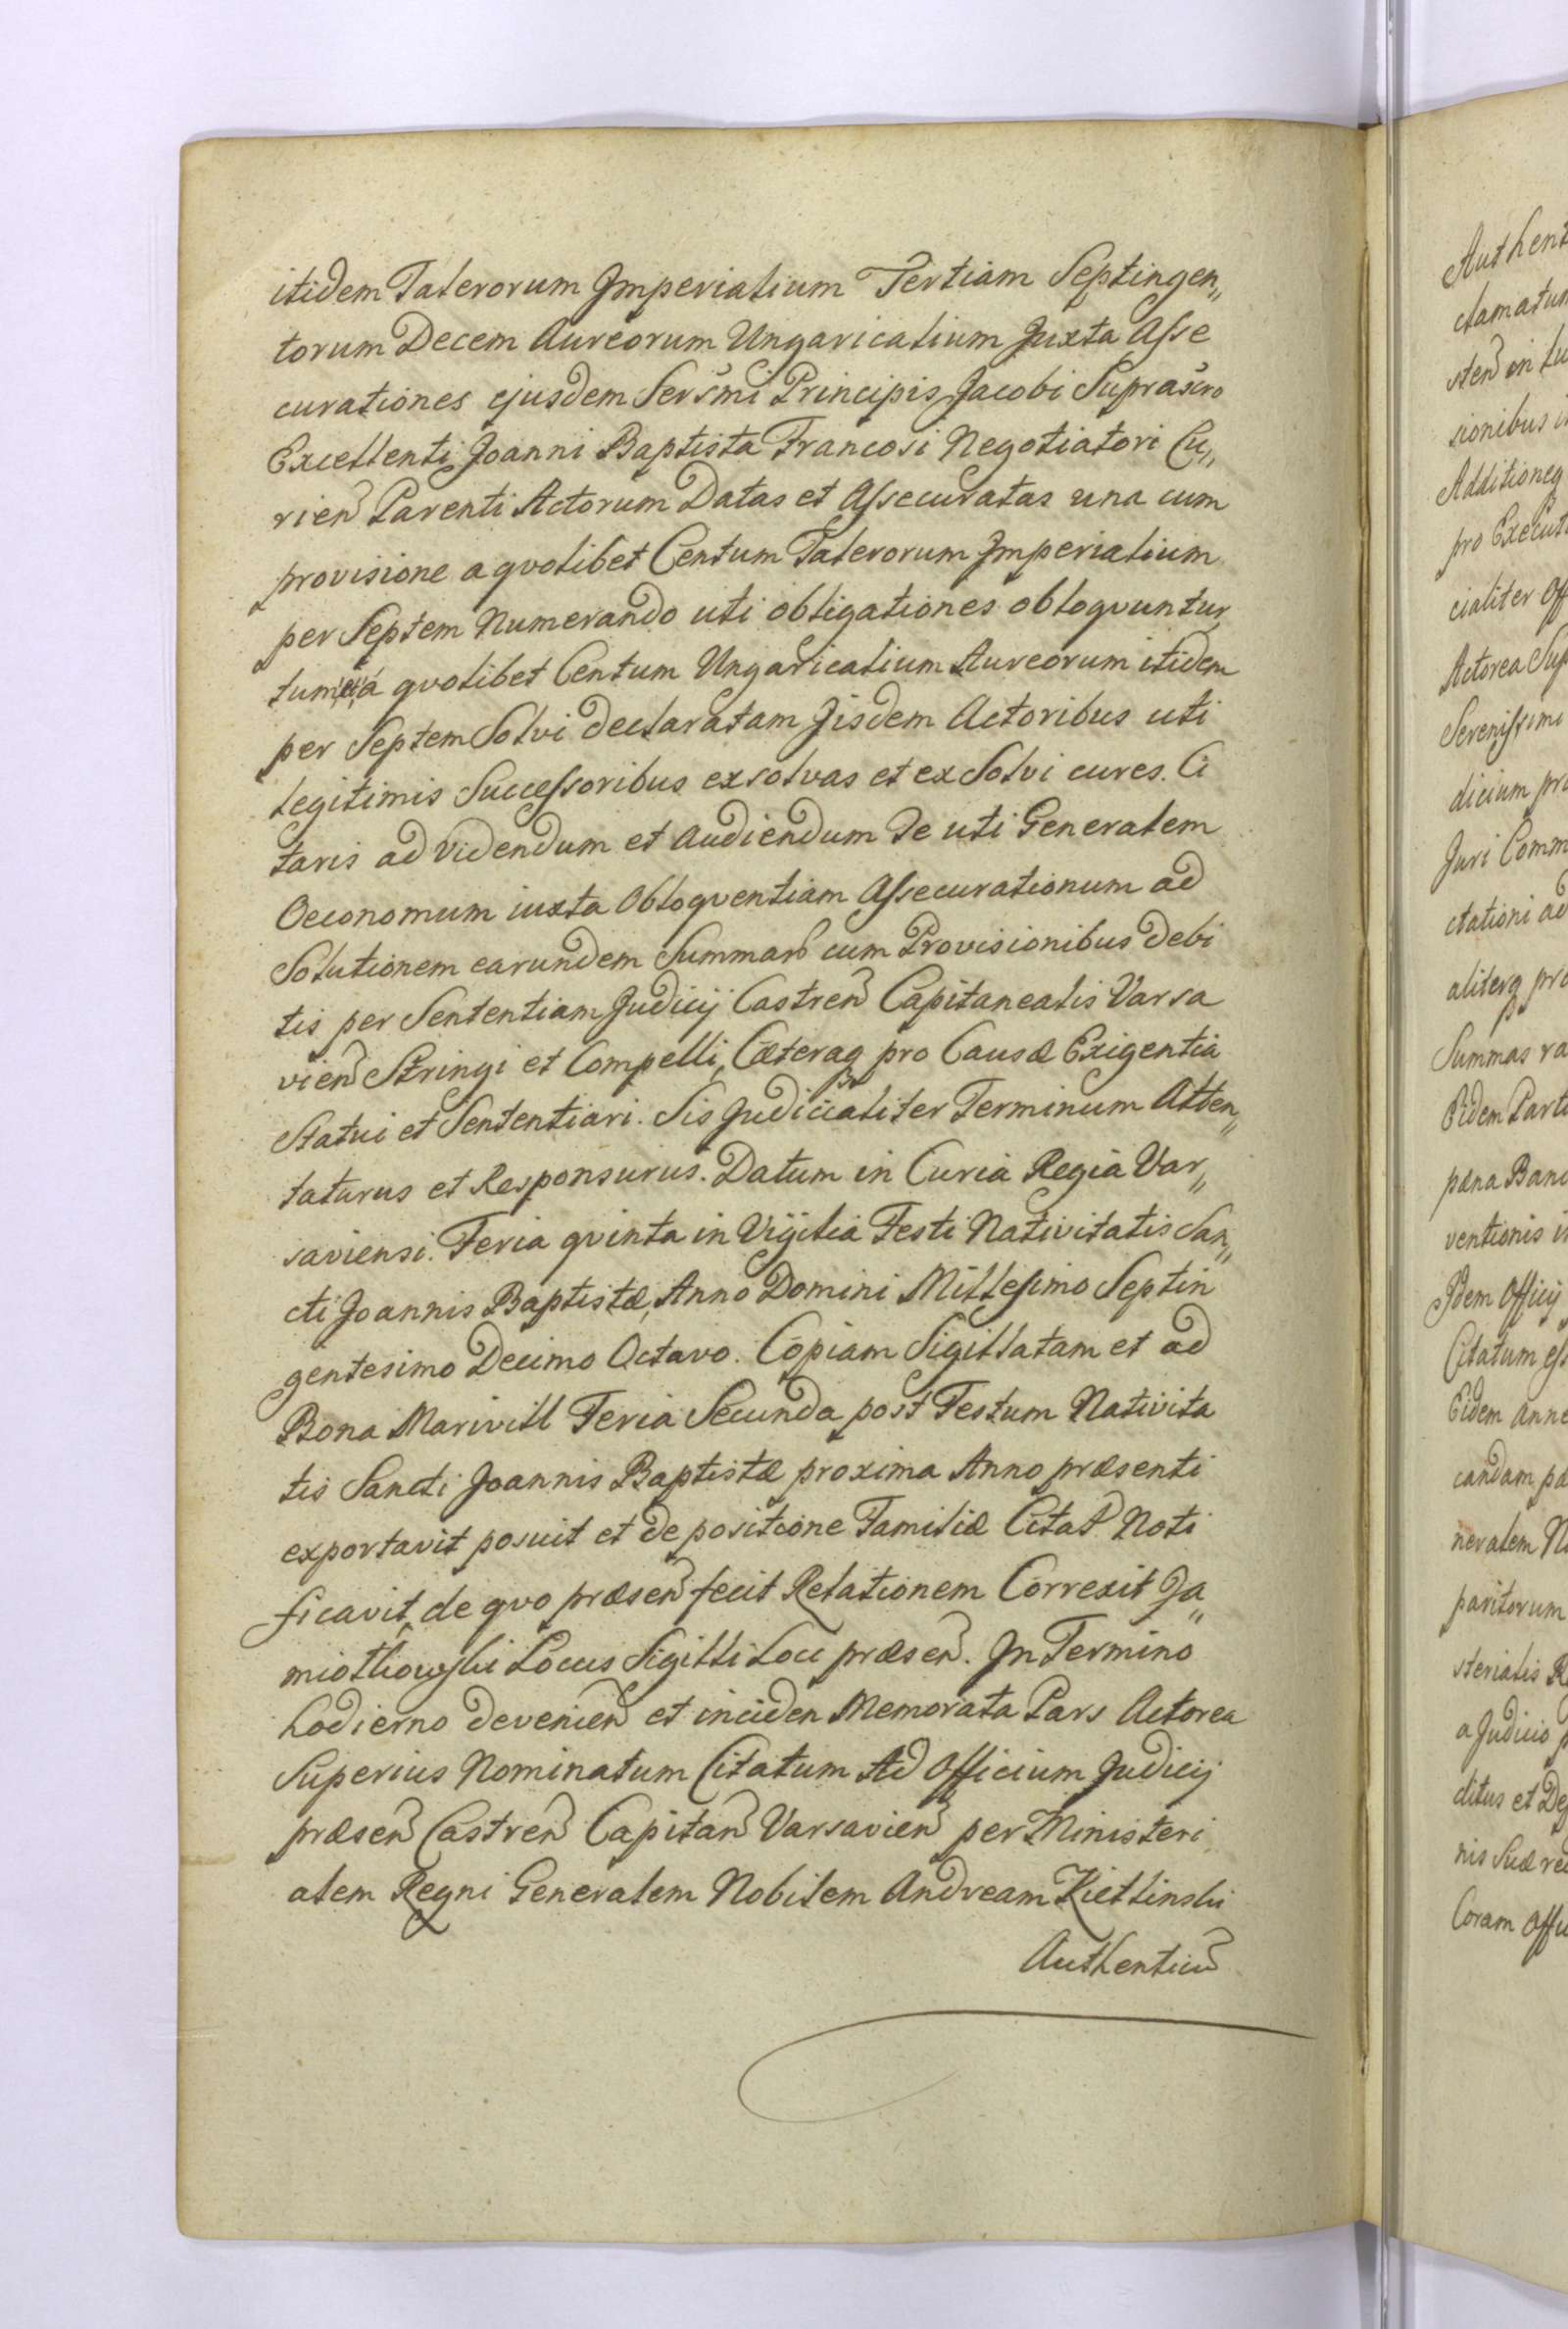 itidem Talerorum Jmperialium Tertiam Septingen„
torum Decem Aureorum Ungaricalium Juxta Asse
curationes ejusdem Sers̃mi Principis Jacobi Suprascro
Excellenti Joanni Baptista Francosi Negotiatori Cu„
rien̄ Parenti Actorum Datas et Assecuratas una cum
provisione a qvolibet Centum Talerorum Jmperialium
per Septem Numerando uti obligationes obloqvuntur
tum á qvolibet Centum Ungaricalium Aureorum itidem
per Septem Solvi declaratam Jisdem Actoribus uti
legitimis Successoribus exsolvas et exSolvi cures. Ci
taris ad videndum et Audiendum Te uti Generalem
Oeconomum iuxta Obloqventiam Assecurationum ad
Solutionem earundem Summar̄ cum Provisionibus debi
tis per Sententiam Judicij Castren̄ Capitanealis Varsa
vien̄ Stringi et Compelli, Cæteraq pro Causæ Exigentia
Statui et Sententiari. Sis Judicialiter Terminum Atten„
taturus et Responsurus. Datum in Curia Regia Var„
saviensi. Feria qvinta in Vigilia Festi Nativitatis San„
cti Joannis Baptistæ, Anno Domini Millesimo Septin
gentesimo Decimo Octavo. Copiam Sigillatam et ad
Bona Marivill Feria Secunda post Festum Nativita
tis Sancti Joannis Baptistæ proxima Anno præsenti
exportavit posuit et de positione Familiæ Citat̄ Noti
ficavit, de qvo præsen̄ fecit Relationem Correxit Ja„
miołkowski Locus Sigilli Loci præsen̄. Jn Termino
hodierno devenien̄ et inciden Memorata Pars Actorea
Superius Nominatum Citatum Ad Officium Judicij
præsen̄ Castren̄ Capitan̄ Varsavien̄ per Ministeri
alem Regni Generalem Nobilem Andream Kietlinski
Authenticū
Authent
clamatum
sten̄ in
sionibus
Additioneq
pro Execut
cialiter Off
Actorea Sup
Serenissimi
dicium pro
Juri Comm
ctationi ad
aliterq pro
Summas ra
Eidem Parti
pæna Bani
ventionis i
Jdem Officij
Citatum ess
Eidem Anne
candam pæ
neralem N
paritorum
sterialis R
a Judicio p
ditus et De
nis Suæ re
Coram Offi